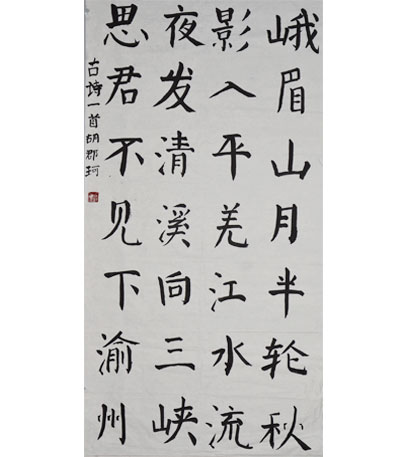 峨眉山月半轮秋
影入平羌江水流
夜发清溪向三峡
思君不见下渝州
古诗一首胡郡珂